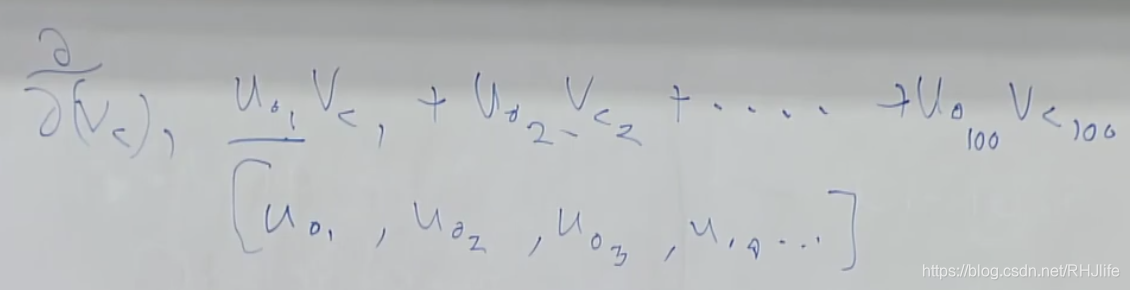 ∂/∂(V_c)_1 u_{o_1} V_{c_1} + u_{o_2} V_{c_2} + ..... + u_{o_{100}} V_{c_{100}}
[u_{o_1}, u_{o_2}, u_{o_3}, u ...]
https://blog.csdn.net/RHJlife